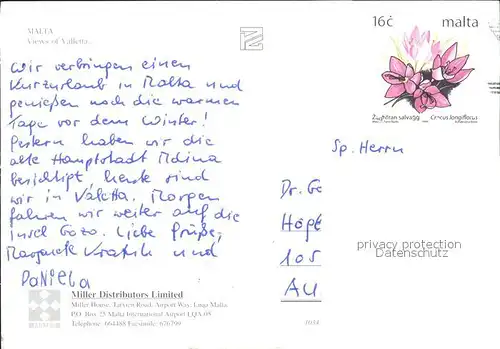 MALTA
Views of Valletta.
Wir verbringen einen
Kurzurlaub in Malta und
genießen noch die warmen
Tage vor dem Winter!
Gestern haben wir die
alte Hauptstadt Mdina
besichtigt, heute sind
wir in Valetta. Morgen
fahren wir weiter auf die
Insel Gozo. Liebe Grüße,
Margarete und
Daniela
16c malta
Żagħfran salvaġġ Crocus longiflorus
Sp. Herrn
Dr. Ge
Höpf
105
AU
privacy protection
Datenschutz
Miller Distributors Limited
Miller House, Tarxien Road, Airport Way, Luqa Malta.
P.O. Box 25 Malta International Airport LQA 05
Telephone 664488 Facsimile: 676799